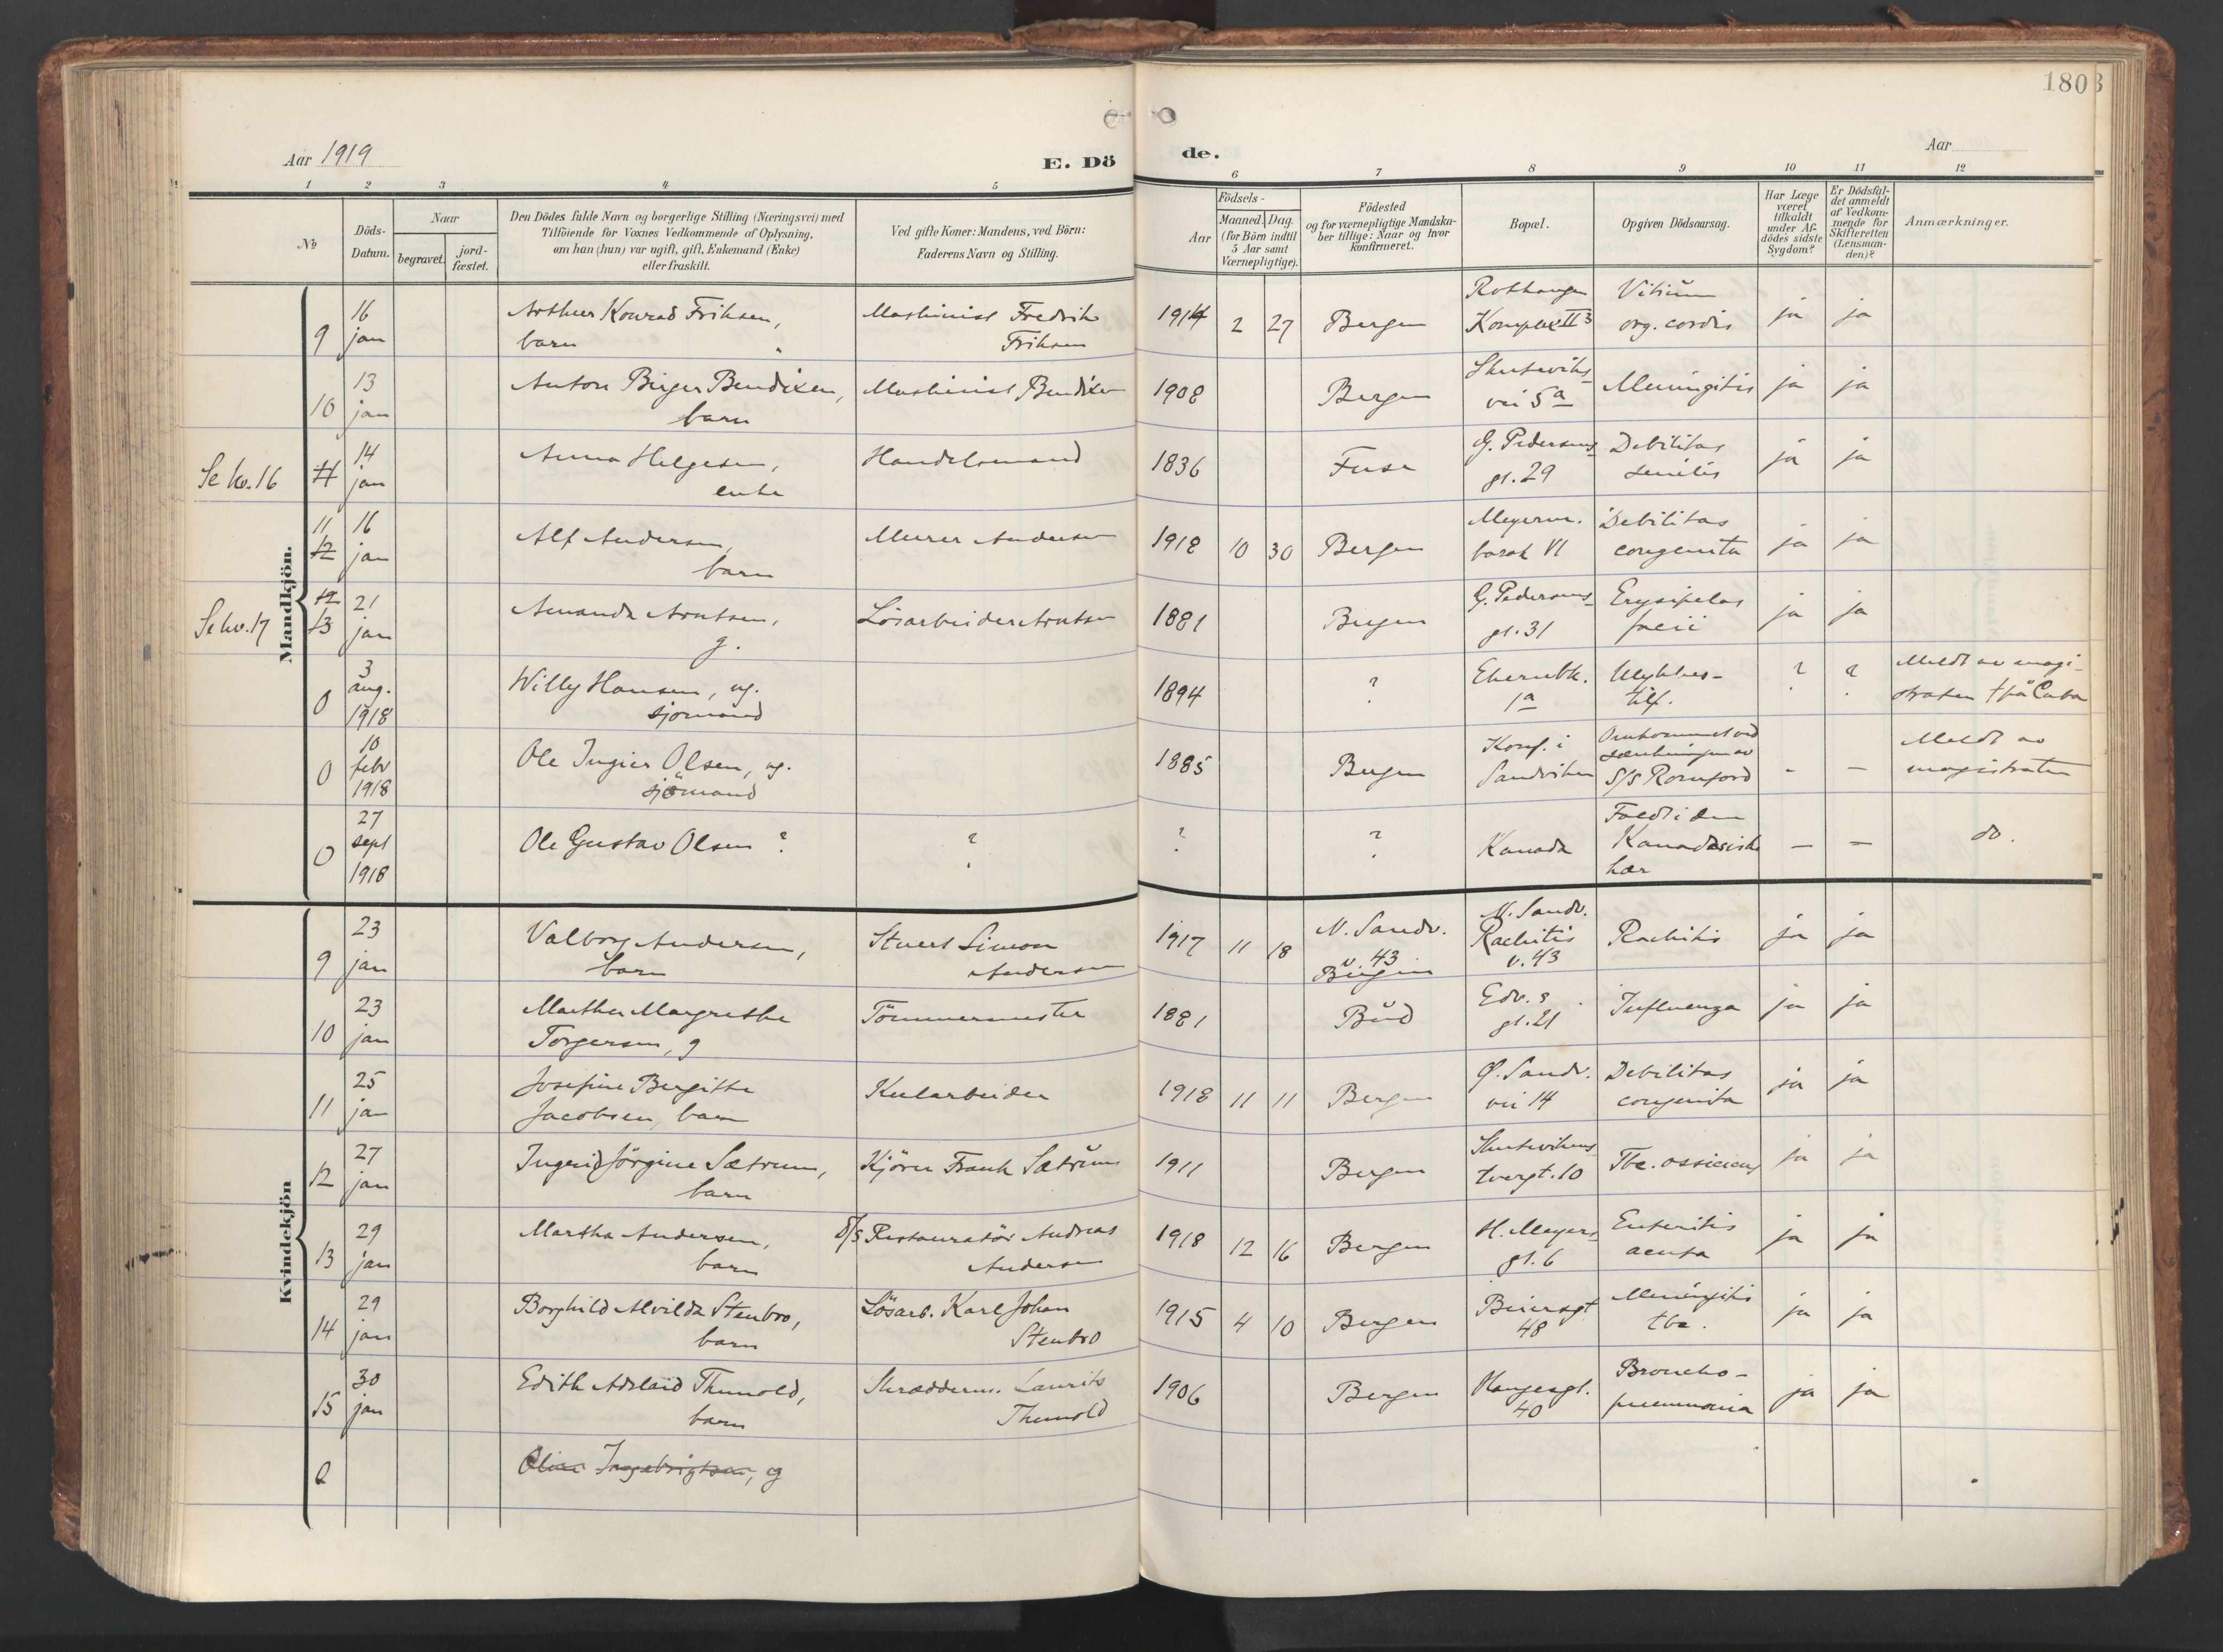 1803
Aar 1919
E. Dö de.
Aar
1 2 3 4 5 6 7 8 9 10 11 12
No
Döds-Datum.
Naar
begravet. jord-fæstet.
Den Dödes fulde Navn og borgerlige Stilling (Næringsvei) med
Tilföiende for Voxnes Vedkommende af Oplysning,
om han (hun) var ugift, gift, Enkemand (Enke)
eller fraskilt.
Ved gifte Koner: Mandens, ved Börn:
Faderens Navn og Stilling.
Födsels-
Aar Maaned. Dag.
(for Börn indtil
5 Aar samt
Værnepligtige).
Födested
og for værnepligtige Mandska-
ber tillige: Naar og hvor
Konfirmeret.
Bopæl.
Opgiven Dödsaarsag.
Har Læge
været
tilkaldt
under Af-
dödes sidste
Sygdom?
Er Dödsfal-
det anmeldt
af Vedkom-
mende for
Skifteretten
(Lensman-
den)?
Anmærkninger.
Mandkjön.
9 16 jan Arthur Konrad Eriksen, barn Maskinist Fredrik Eriksen 1914 2 27 Bergen Komplex II 3 Vitium org. cordis ja ja
10 13 jan Anton Birger Bendixen, barn Maskinist Bendixen 1908 Bergen Skuteviks- vei 5a Meningitis ja ja
Se kv. 16 11 14 jan Anna Helgesen, enke Handelsmand 1836 Fuse G. Pedersens- gt. 29 Debilitas senilis ja ja
11 12 16 jan Alf Andersen, barn Murer Andersen 1918 10 30 Bergen Meyerm. barak VI Debilitas congenita ja ja
Se kv. 17 12 13 21 jan Amanda Arntsen, g. Lösarbeider Arntsen 1881 Bergen G. Pedersens- gt. 31 Erysipelas faciei ja ja
0 3 aug. 1918 Willy Hansen, ug. sjömand 1894 ? 1a Ulykkes- tilf. ? ? Meldt av magi- straten † på Cuba
0 10 febr 1918 Ole Ingier Olsen, ug. sjömand 1885 Bergen Konf. i Sandviken Omkommet ved sænkningen av S/S Romford - - Meldt av magistraten
0 27 sept 1918 Ole Gustav Olsen ? ? ? ? Kanada Faldt i den Kanadesiske hær - - do.
Kvindekjön
9 23 jan Valborg Andersen, barn Stuert Simon Andersen 1917 11 18 N. Sandv. v. 43 Bergen N. Sandv. Rachitis v. 43 Rachitis ja ja
10 23 jan Marthe Margrethe Torgersen, g Tömmermester 1881 Bud Edv. s gt. 21 Influenza ja ja
11 25 jan Josefine Bergitte Jacobsen, barn Kularbeider 1918 11 11 Bergen Ø. Sandv. vei 14 Debilitas congenita ja ja
12 27 jan Ingerid Jörgine Sætrum, barn Kjörer Frank Sætrum 1911 Bergen Skutevikens tvergt. 10 Tbc. ossium ja ja
13 29 jan Martha Andersen, barn D/S Restauratör Andreas Andersen 1918 12 16 Bergen H. Meyers- gt. 6 Enteritis acuta ja ja
14 29 jan Borghild Alvilda Stenbro, barn Lösarb. Karl Johan Stenbro 1915 4 10 Bergen Beiersgt 48 Meningitis tbc. ja ja
15 30 jan Edith Adelaid Thunold, barn Skrædderm. Laurits Thunold 1906 Bergen Haugesgt. 40 Broncho- pneumonia ja ja
0 Oline Ingebrigtsen, g